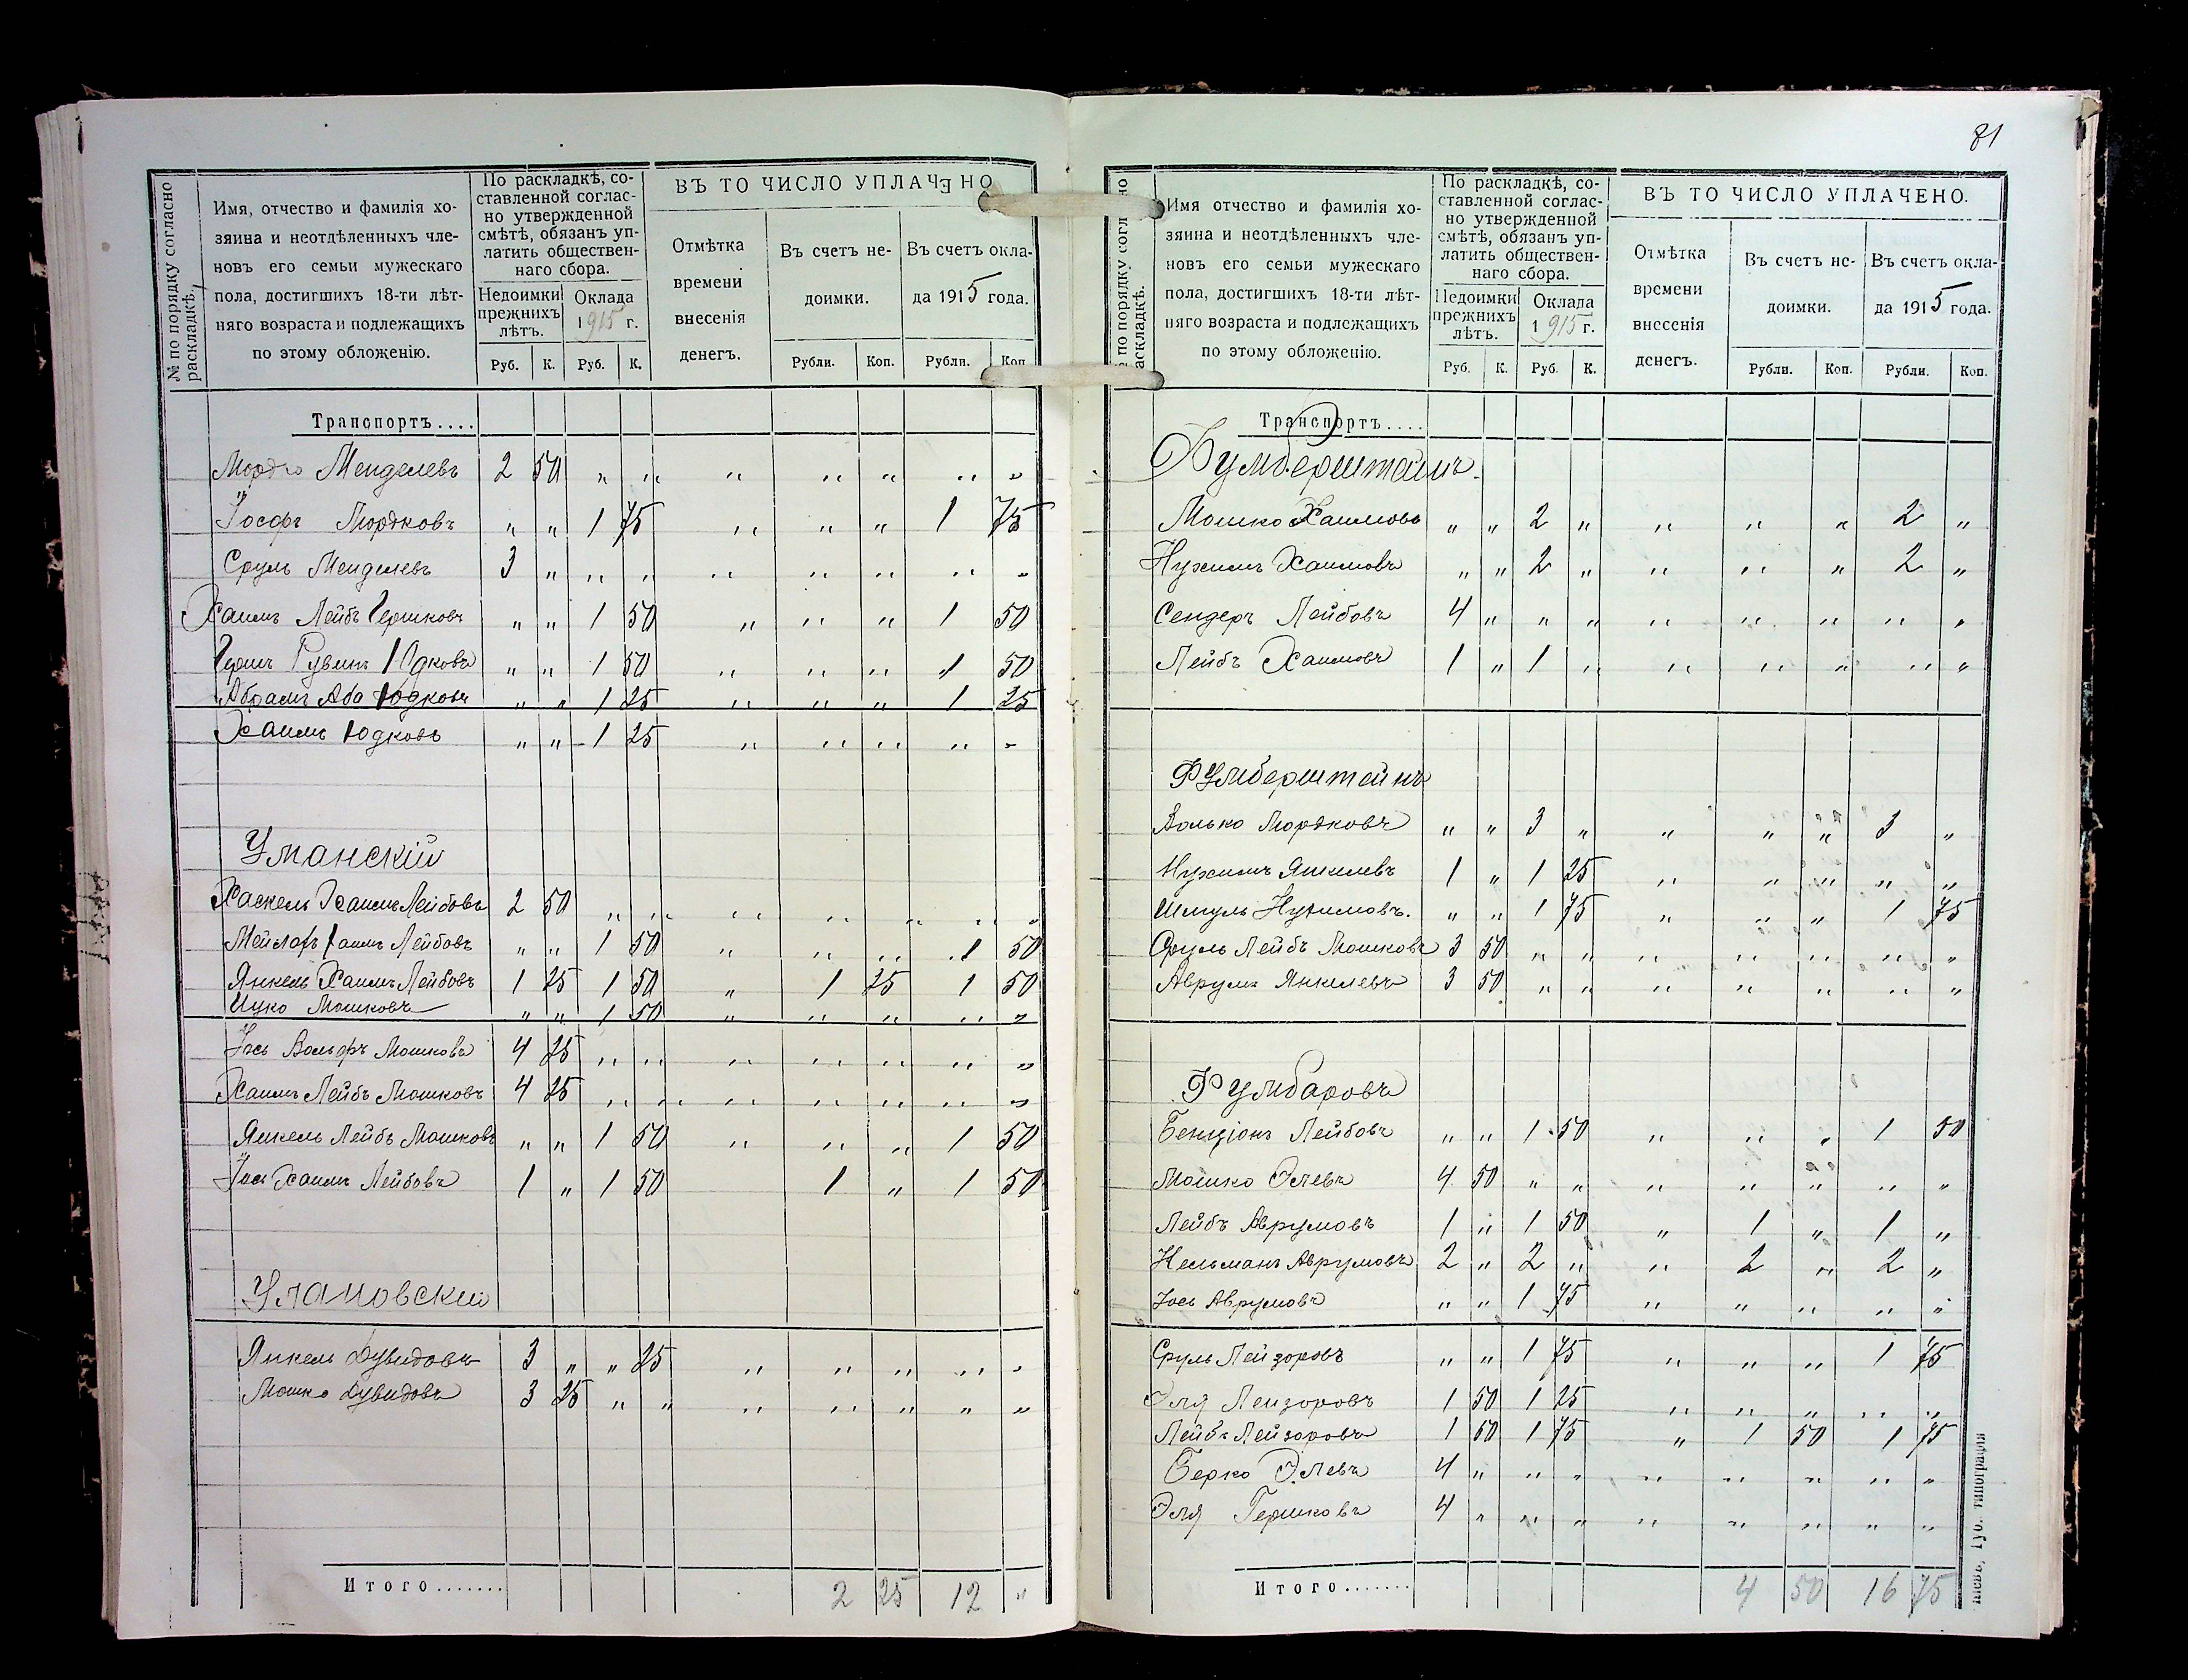 № по порядку согласно раскладкѣ.
Имя, отчество и фамилія хо-
зяина и неотдѣленныхъ чле-
новъ его семьи мужескаго
пола, достигшихъ 18-ти лѣт-
няго возраста и подлежащихъ
по этому обложенію.
По раскладкѣ, со-
ставленной соглас-
но утвержденной
смѣтѣ, обязанъ уп-
латить обществен-
наго сбора.
Недоимки прежнихъ лѣтъ.
Оклада 1915 г.
Руб. К. Руб. К.
ВЪ ТО ЧИСЛО УПЛАЧЕНО
Отмѣтка
времени
внесенія
денегъ.
Въ счетъ не-
доимки.
Въ счетъ окла-
да 1915 года.
Рубли. Коп. Рубли. Коп
Транспортъ....
Мордко Менделевъ 2 50 „ „ „ „ „ „ „
Іосифъ Мордковъ „ „ 1 75 „ „ „ 1 75
Сруль Менделевъ 3 „ „ „ „ „ „ „ „
Хаимъ Лейбъ Гершковъ „ „ 1 50 „ „ „ 1 50
Герш Рувинъ Юдковъ „ „ 1 50 „ „ „ 1 50
Абрамъ Аба Юдковъ „ „ 1 25 „ „ „ 1 25
Хаимъ Юдковъ „ „ 1 25 „ „ „ „ „
Уманскій
Хаскель Хаимъ Лейбовъ 2 50 „ „ „ „ „ „ „
Хаимъ Лейбовъ „ „ 1 50 „ „ „ 1 50
Янкель Хаимъ Лейбовъ 1 25 1 50 „ 1 25 1 50
Ицко Мошковъ „ „ 1 50 „ „ „ „ „
Іось Вольфъ Мошковъ 4 25 „ „ „ „ „ „ „
Хаимъ Лейбъ Мошковъ 4 25 „ „ „ „ „ „ „
Янкель Лейбъ Мошковъ „ „ 1 50 „ „ „ 1 50
Іось Хаимъ Лейбовъ 1 „ 1 50 1 „ 1 50
Улановскій
Янкель Дувидовъ 3 „ „ 25 „ „ „ „ „
Мошко Дувидовъ 3 25 „ „ „ „ „ „ „
Итого....... 2 25 12 „
81
№ по порядку согласно раскладкѣ.
Имя отчество и фамилія хо-
зяина и неотдѣленныхъ чле-
новъ его семьи мужескаго
пола, достигшихъ 18-ти лѣт-
няго возраста и подлежащихъ
по этому обложенію.
По раскладкѣ, со-
ставленной соглас-
но утвержденной
смѣтѣ, обязанъ уп-
латить обществен-
наго сбора.
Недоимки прежнихъ лѣтъ.
Оклада 1915 г.
Руб. К. Руб. К.
ВЪ ТО ЧИСЛО УПЛАЧЕНО.
Отмѣтка
времени
внесенія
денегъ.
Въ счетъ не-
доимки.
Въ счетъ окла-
да 1915 года.
Рубли. Коп. Рубли. Коп.
Транспортъ....
Мошко Хаимовъ „ „ 2 „ „ „ „ 2 „
Нухимъ Хаимовъ „ „ 2 „ „ „ „ 2 „
Сендеръ Лейбовъ 4 „ „ „ „ „ „ „ „
Лейбъ Хаимовъ 1 „ 1 „ „ „ „ „ „
Фумберштейнъ
Волько Мордковъ „ „ 3 „ „ „ „ 3 „
Нухимъ Янкелевъ 1 „ 1 25 „ „ „ „ „
Шмуль Нухимовъ. „ „ 1 75 „ „ „ 1 75
Сруль Лейбъ Мошковъ 3 50 „ „ „ „ „ „ „
Аврумъ Янкелевъ 3 50 „ „ „ „ „ „ „
Фумбаровъ
Бенціонъ Лейбовъ „ „ 1 50 „ „ „ 1 50
Мошко Элевъ 4 50 „ „ „ „ „ „ „
Лейбъ Аврумовъ 1 „ 1 50 „ 1 „ 1 „
Кельманъ Аврумовъ 2 „ 2 „ „ 2 „ 2 „
Іось Аврумовъ „ „ 1 75 „ „ „ „ „
Сруль Лейзоровъ „ „ 1 75 „ „ „ 1 75
Эля Лейзоровъ 1 50 1 25 „ „ „ „ „
Лейбъ Лейзоровъ 1 50 1 75 „ 1 50 1 75
Берко Элевъ 4 „ „ „ „ „ „ „ „
Эля Гершковъ 4 „ „ „ „ „ „ „ „
Итого....... 4 50 16 75
Кіевъ, Губ. типографія